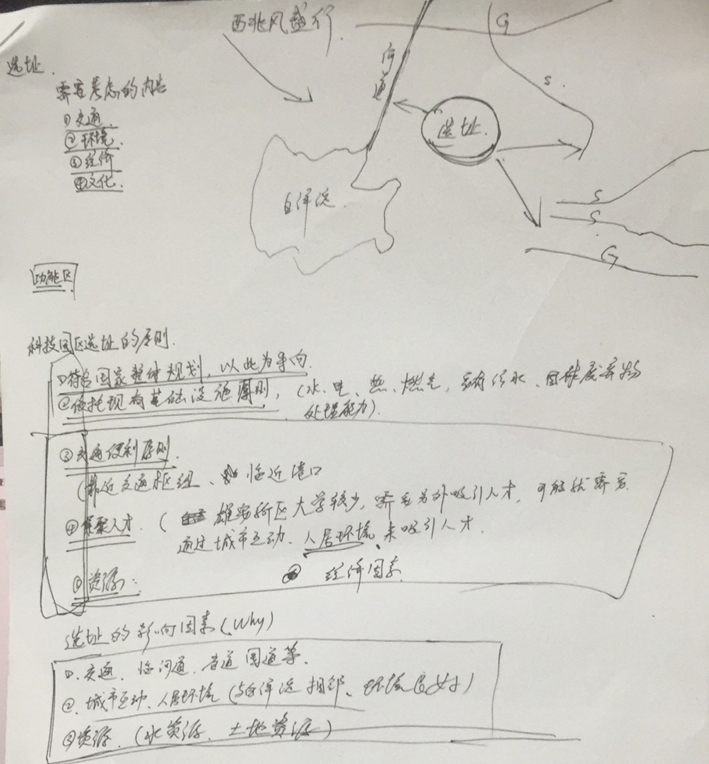 西北风盛行
G
选址
河道
S
需要考虑的内容
①交通
②环境
③经济
④文化
选址
白洋淀
S
S
G
功能区
科技园区选址的原则
①符合国家整体规划，以此为导向
②依托现有基础设施原则，（水、电、热、燃气，污水、固体废弃物
处理能力）
③交通便利原则
（靠近交通枢纽、临近港口
④集聚人才（雄安新区大学较少，需要另外吸引人才，
通过城市互动、人居环境、来吸引人才
⑤资源：
⑥ 经济因素
选址的影响因素（Why）
①、交通、临河道、省道国道等
②、城市互动、人居环境（与白洋淀相邻、环境良好）
③资源、（水资源、土地资源）